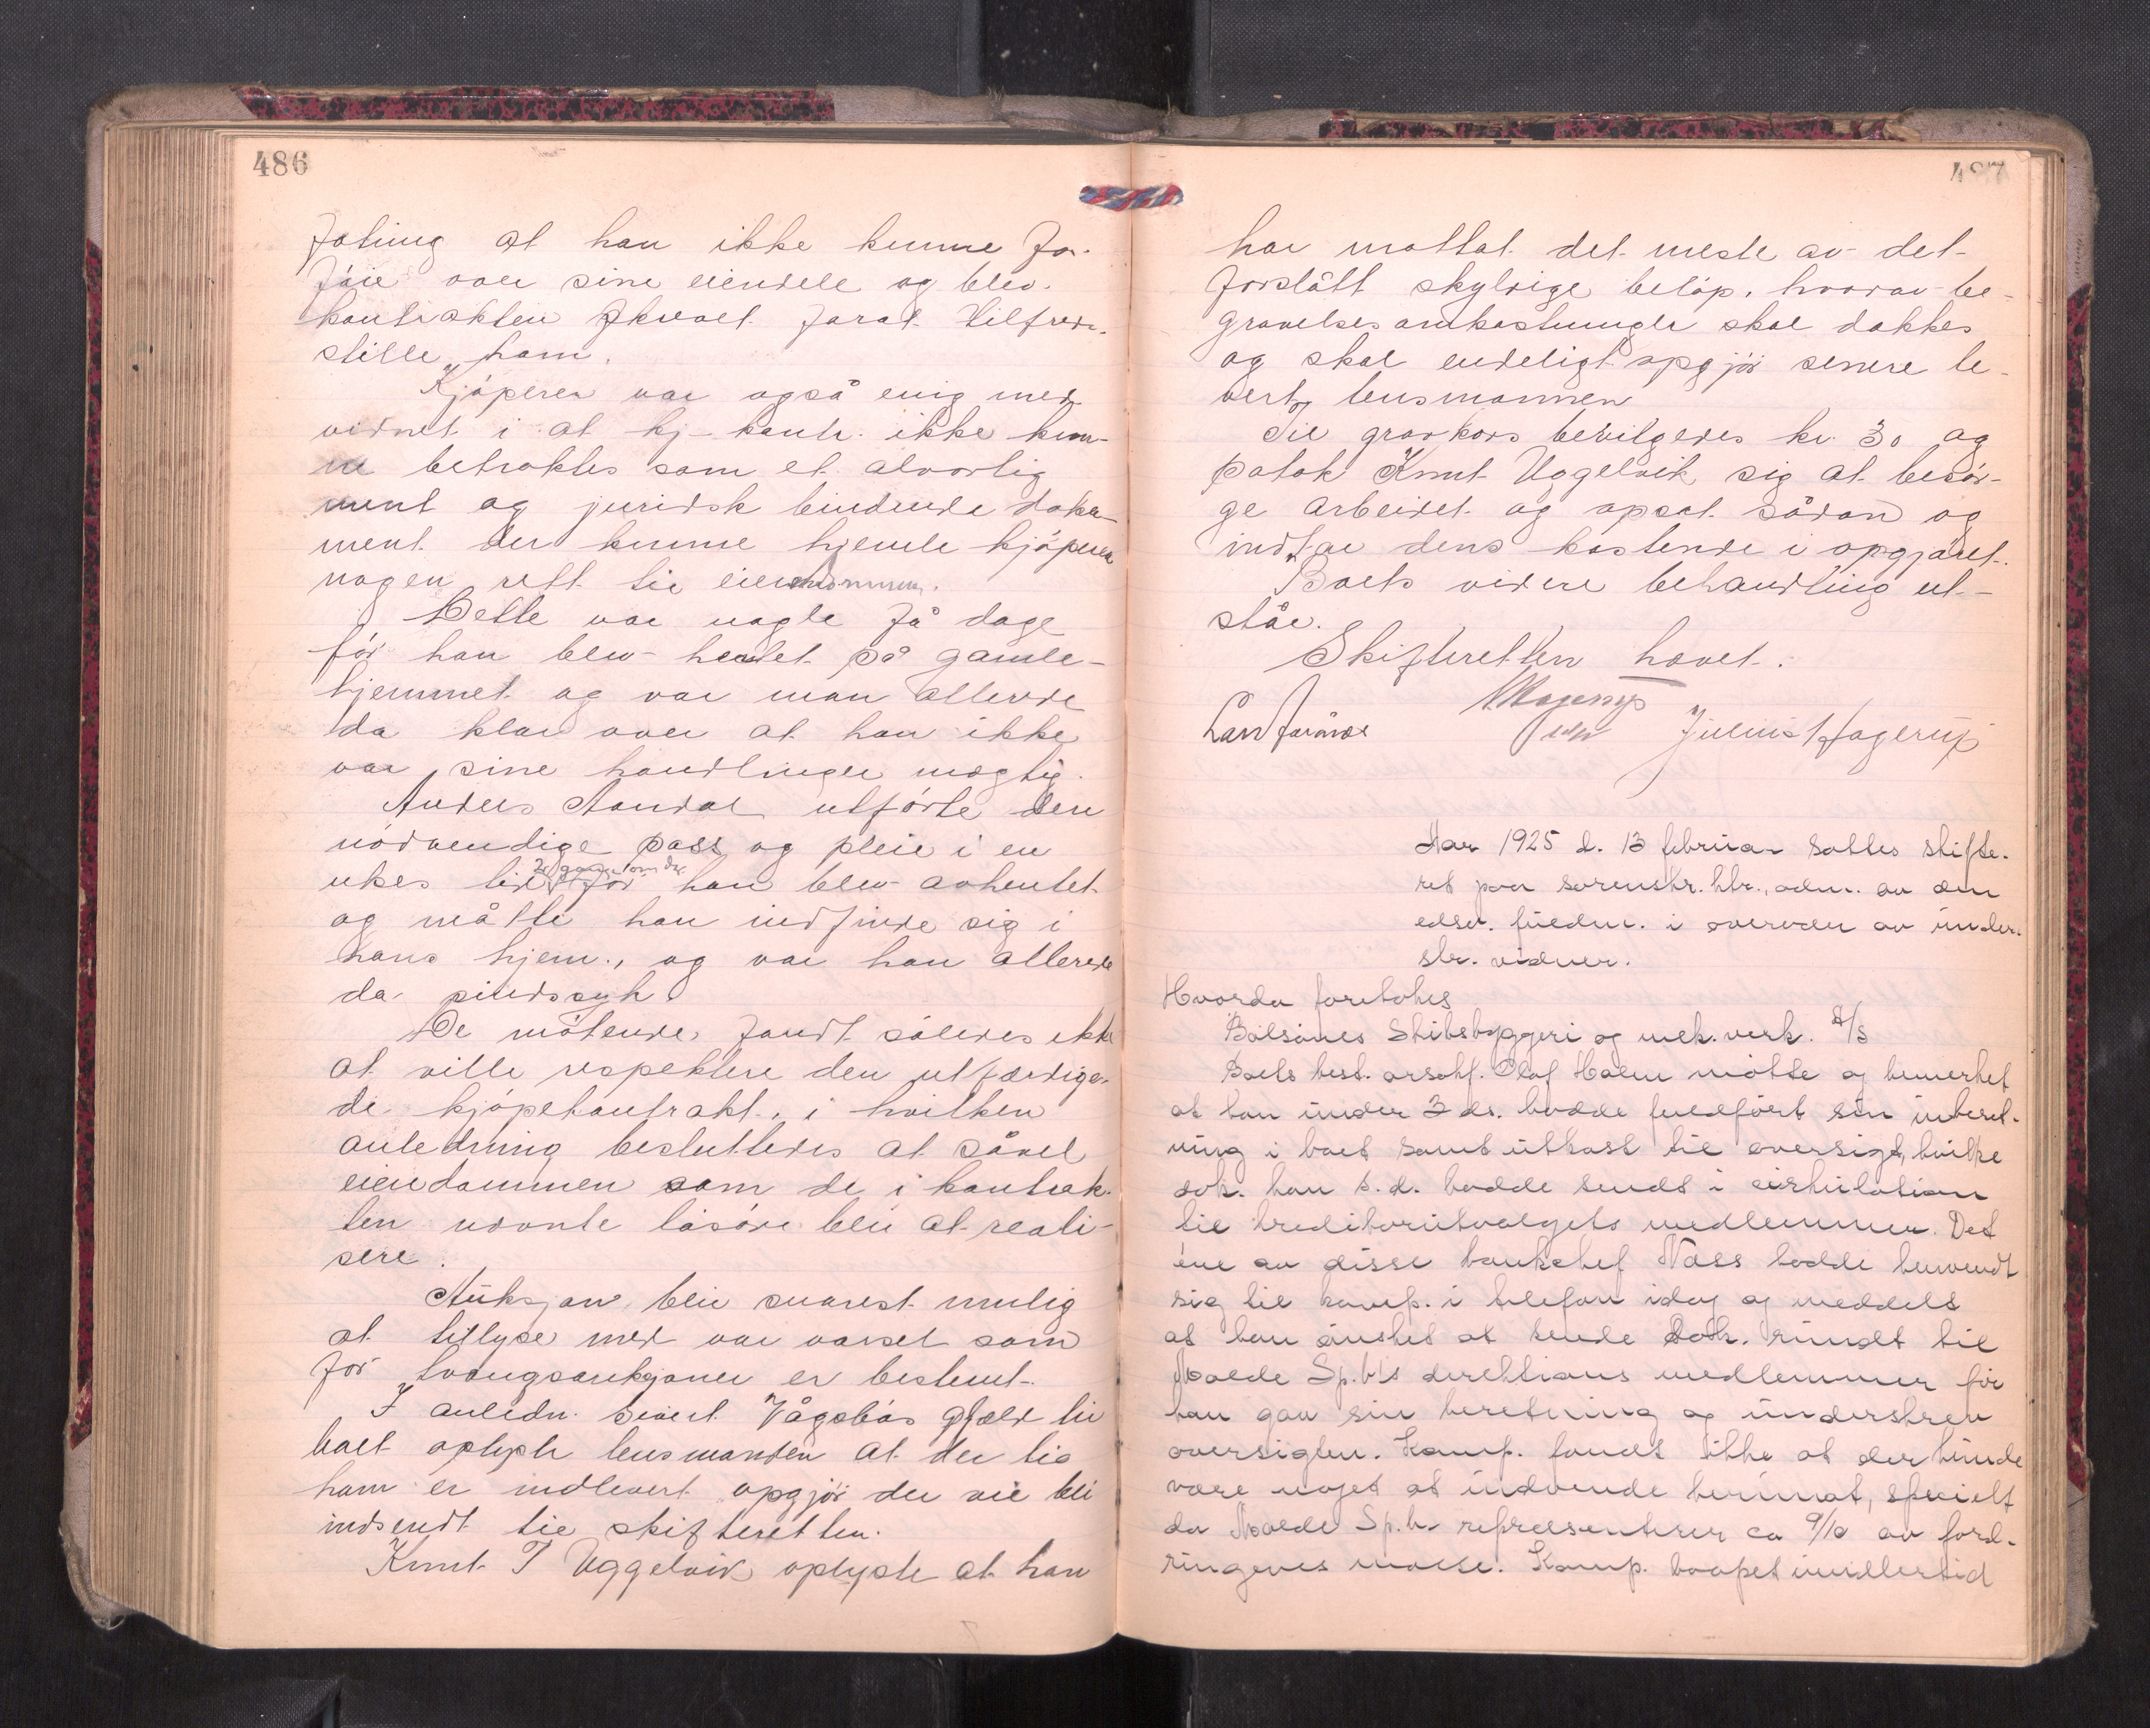 486
fatning at han ikke kunne for-
föie over sine eiendele og blev
kontrakten skrevet forat tilfreds-
stille ham.
Kjöperen var også enig med
vidnet i at kj-kontr. ikke kun-
ne betraktes som et alvorlig
ment og juridisk bindende doku-
ment der kunne hjemle kjöperen
nogen rett til eiendommen.
Dette var nogle få dage
för han blev hentet på gamle-
hjemmet og var man allerede
da klar over at han ikke
var sine handlinger mægtig.
Anders Aandal utförte den
nödvendige pass og pleie i en
ukes tid för han blev avhentet
og måtte han indfinde sig i
hans hjem, og var han allerede
da sindssyk.
De mötende fandt således ikke
at ville respektere den utfærdige-
de kjöpekontrakt, i hvilken
anledning besluttedes at såvel
eiendommen som de i kontrak-
ten nævnte lösöre blir at reali-
sere.
Auksjon blir snarest mulig
at tillyse med var varsel som
for tvangsauksjoner er bestemt.
I anledn. Sivert Vågsbös gjæld til
boet oplyste lensmanden at der til
ham er indlevert opgjör der vil bli
indsendt til skifteretten.
Knut T Uggelvik oplyste at han
487
har mottat det meste av det
forstått skyldige belöp, hvorav be-
gravelsesomkostninger skal dækkes
og skal endeligt opgjör senere le-
vert lensmannen
Til gravkors bevilgedes kr 30 og
påtok Knut Uggelvik sig at besör-
ge arbeidet og opsat sådan og
indtar dens kostende i opgjöret.
Boets videre behandling ut-
står.
Skifteretten hævet.
Lars Julius Hagerup
Aar 1925 d. 13 februar sattes skifte-
ret paa sorenskr. ktr., adm. av den
edsv. fuldm. i overvær av under-
skr. vidner.
Hvorda foretokes
Bolsönes Skibsbyggeri og mek. verk. A/S
Boets best. orsakf. Olaf Holm mötte og bemerket
at han under 3 ds. hadde fuldfört sin inberet-
ning i boet samt utkast til oversigt, hvilke
dok. han s.d. hadde sendt i cirkulation
til kreditorutvalgets medlemmer. Det
ene av disse banksjef Næss hadde henvendt
sig til komp. i telefon idag og meddelt
at han önsket at sende dok. rundt til
Molde Sp.b's direktions medlemmer för
han gav sin beretning og underskrev
oversigten. Komp. fandt ikke at der kunde
være noget at indvende herimot, specielt
da Molde Sp.b. repræsenterer ca 9/10 av ford-
ringenes masse. Komp. haapet imidlertid